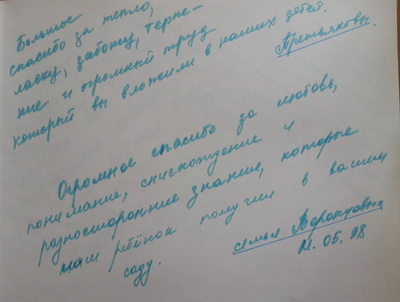 Большое
спасибо за тепло,
ласку, заботу, терпе-
ние и огромный труд
который вы вложили в наших детей.
Третьяковы.
Огромное спасибо за любовь,
понимание, снисхождение и
разносторонние знания, которые
наш ребёнок получил в вашем
саду.
семья
21.05.98